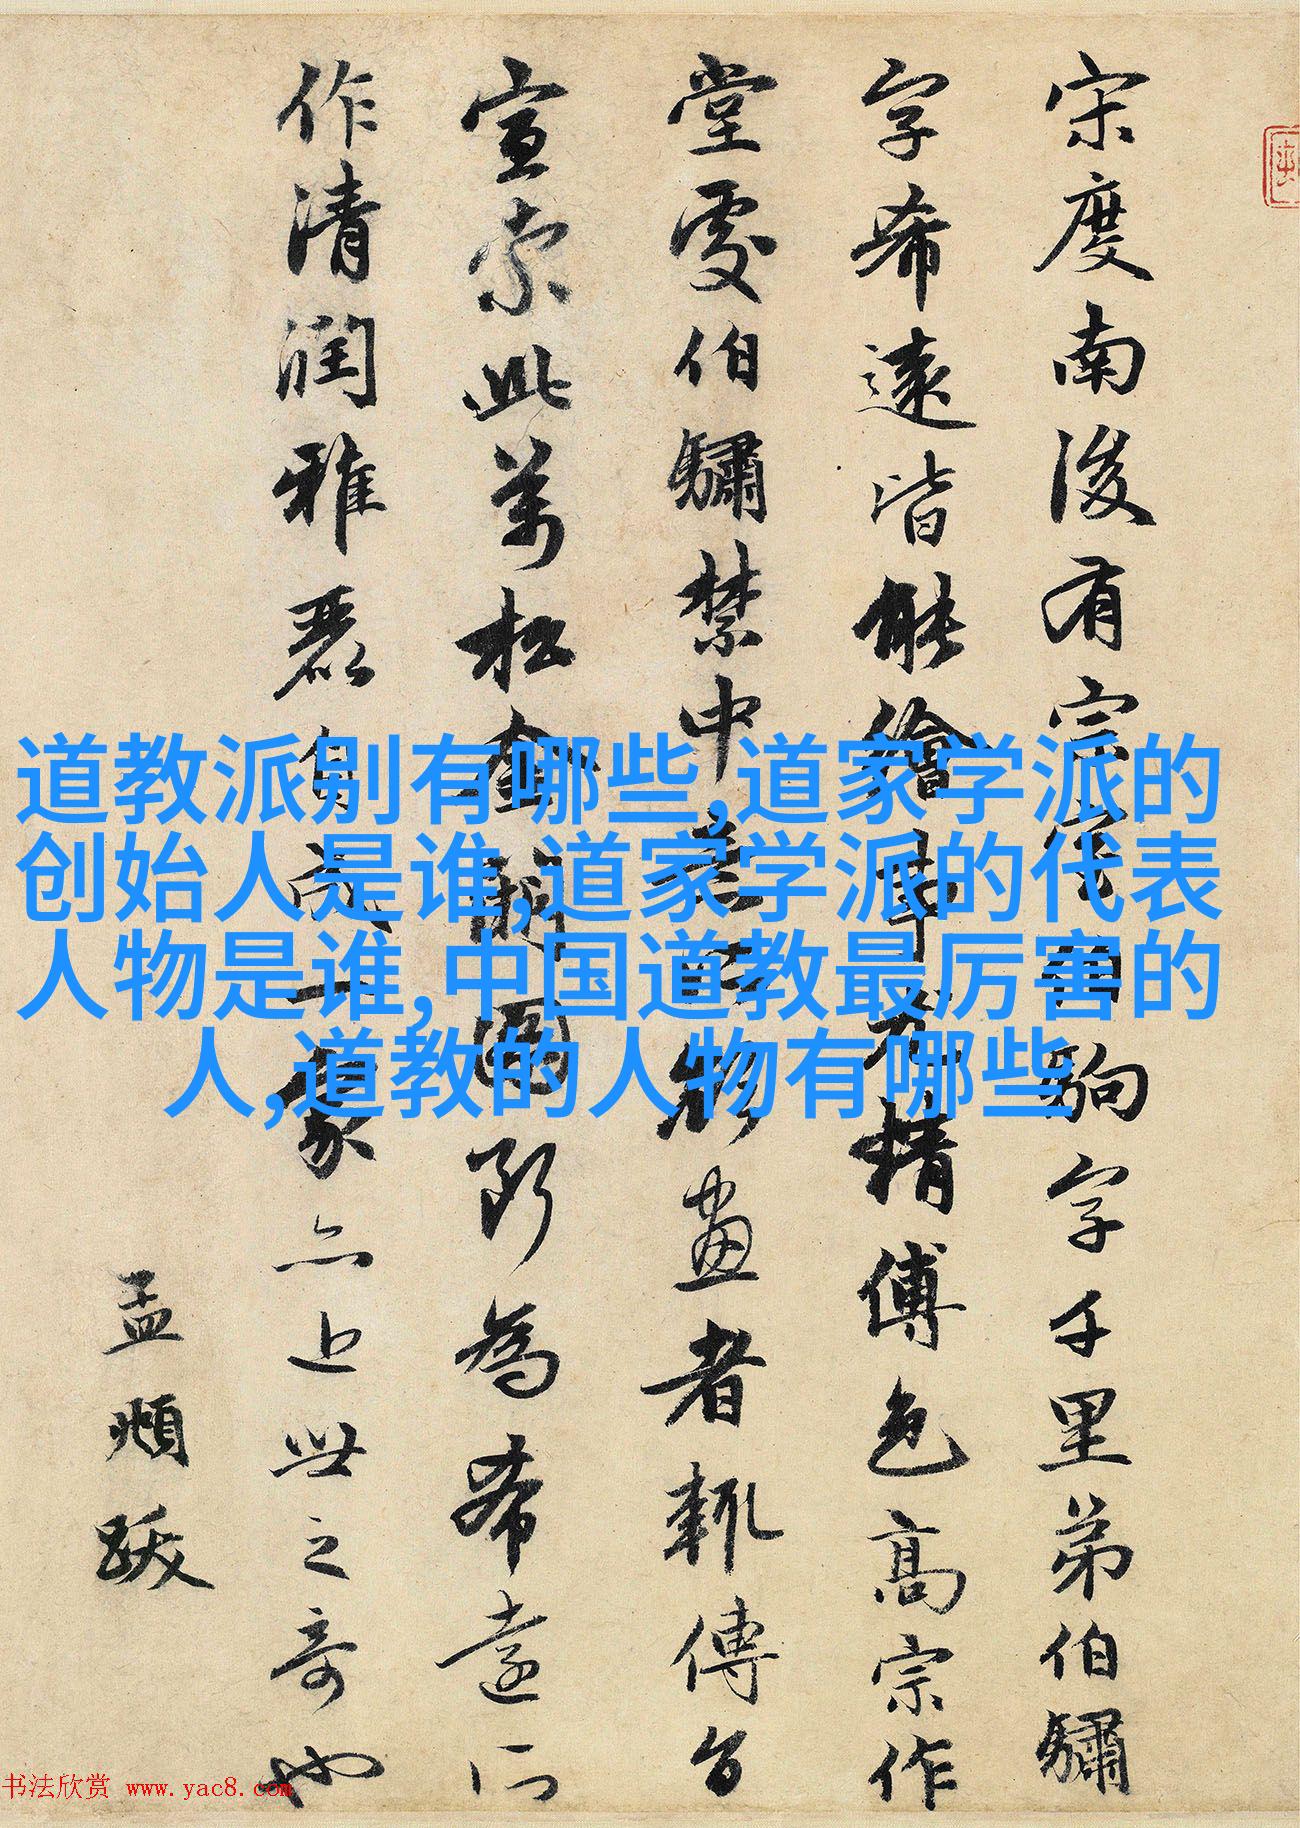 宋度南後有宗室伯駒字千里弟伯驌
字希遠皆能繪事尤精傅色高宗作
堂處伯驌禁中意所欲畫者輒傳旨
宣索此萬松金闕圖斷為希遠所
作清潤雅麗自成一家亦近世之奇也
孟頫跋
道教派别有哪些,道家学派的
创始人是谁,道家学派的代表
人物是谁,中国道教最厉害的
人,道教的人物有哪些
书法欣赏 www.yac8.com